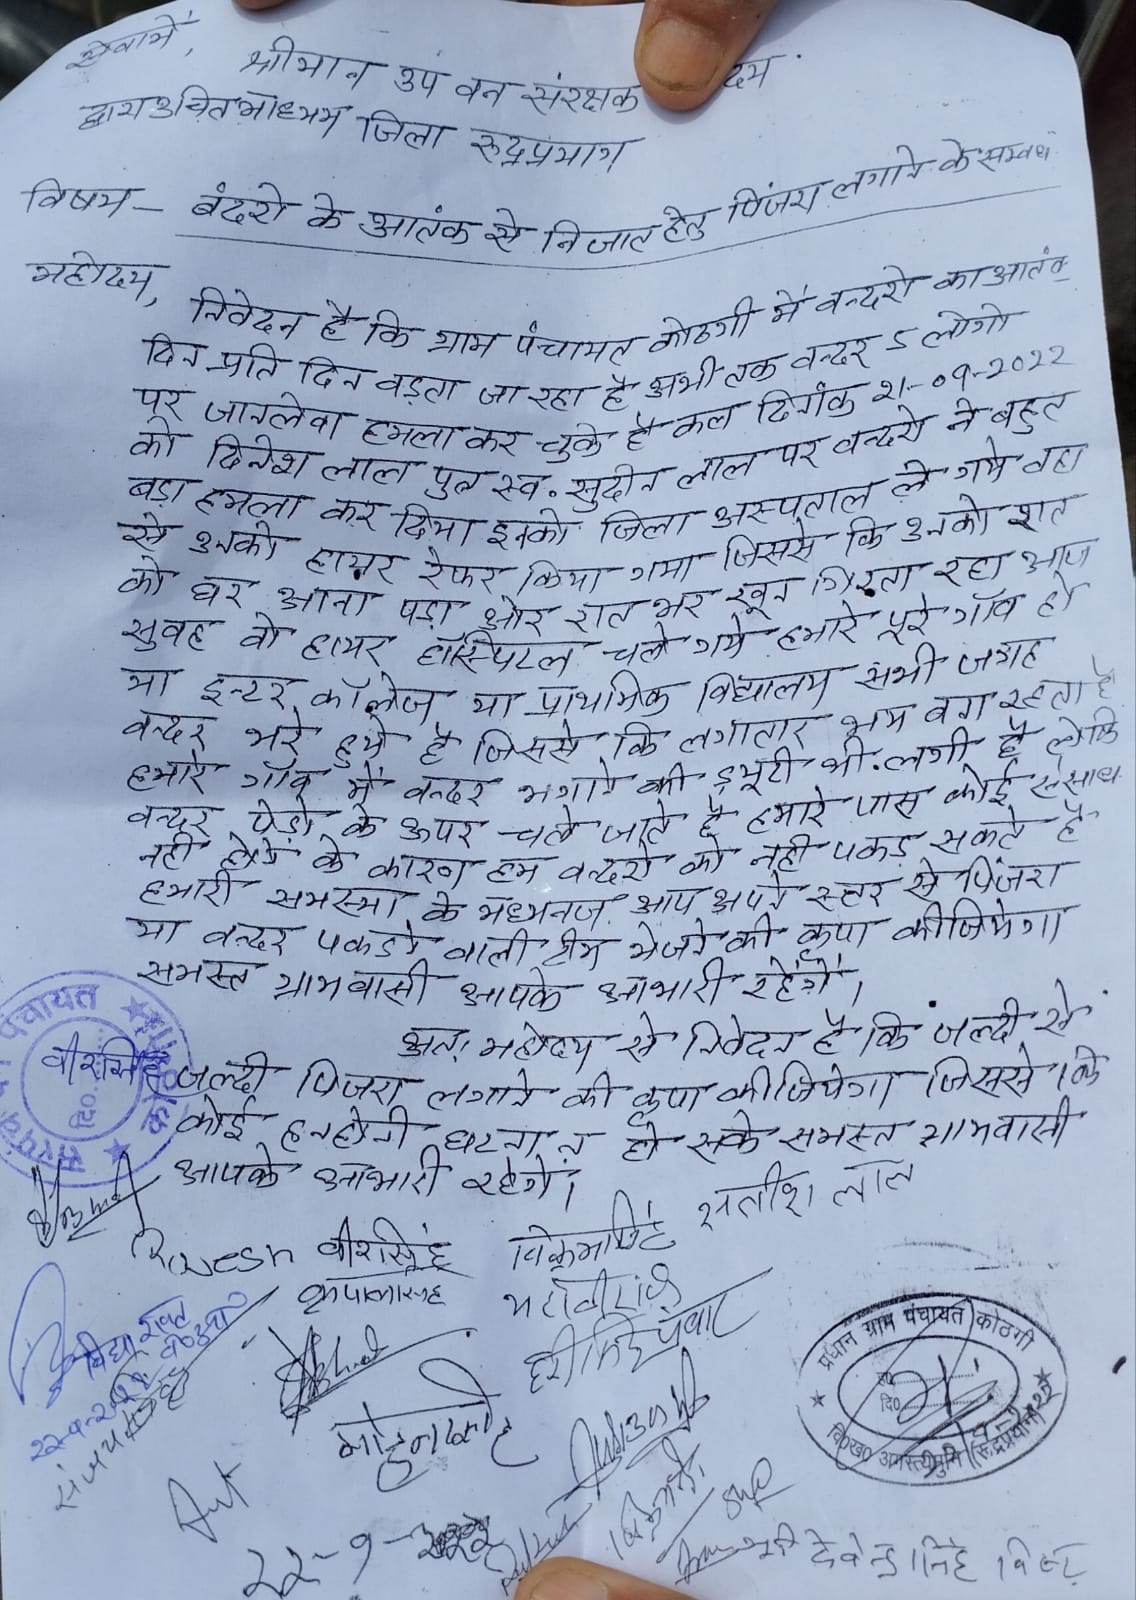 सेवामें,
श्रीमान उप वन संरक्षक
द्वारा उचित माध्यम जिला रूद्रप्रयाग
विषय – बंदरो के आतंक से निजात हेतु पिंजरा लगाने के सम्बध
महोदय,
निवेदन है कि ग्राम पंचायत कोठगी में वन्दरो का आतंक
दिन प्रति दिन वड़ता जा रहा है अभी तक वन्दर 5 लोगो
पर जानलेवा हमला कर चुके है कल दिनांक 21-09-2022
को दिनेश लाल पुत्र स्व. सुदीन लाल पर वन्दरो ने बहुत
बड़ा हमला कर दिया इनको जिला अस्पताल ले गये वहा
से उनको हायर रेफर किया गया जिससे कि उनको रात
को घर आना पड़ा और रात भर खून गिरता रहा आज
सुवह वो हायर हॉस्पिटल चले गये हमारे पूरे गॉव हो
या इन्टर कॉलेज या प्राथमिक विद्यालय सभी जगह
वन्दर भरे हुये है जिससे कि लगातार भय वना रहता है
हमारे गॉव में वन्दर भगाने की ड्यूटी भी लगी है लेकि
वन्दर पेड़ो के ऊपर चले जाते है हमारे पास कोई संसाध
नही होने के कारण हम वन्दरो को नही पकड़ सकते है
हमारी समस्या के मध्यनज. आप अपने स्तर से पिंजरा
या वन्दर पकडने वाली टीम भेजने की कृपा कीजियेगा
समस्त ग्रामवासी आपके आभारी रहेंगें।
अतः महोदय से निवेदन है कि जल्दी से
जल्दी पिंजरा लगाने की कृपा कीजियेगा जिससे कि
कोई हनहोनी घटना न हो सके समस्त ग्रामवासी
आपके आभारी रहेगे।
पंचायत
सरपंच
दि०
वीरसिंह
Rajesh वीरसिंह विक्रमसिंह सतीश लाल
कृपालसिंह
22-9-2022
मोहन सिंह
प्रधान ग्राम पंचायत कोठगी
दि०
वि०ख० अगस्त्यमुनि (रूद्रप्रयाग)
22-9-2022
देवेन्द्र सिंह बिष्ट